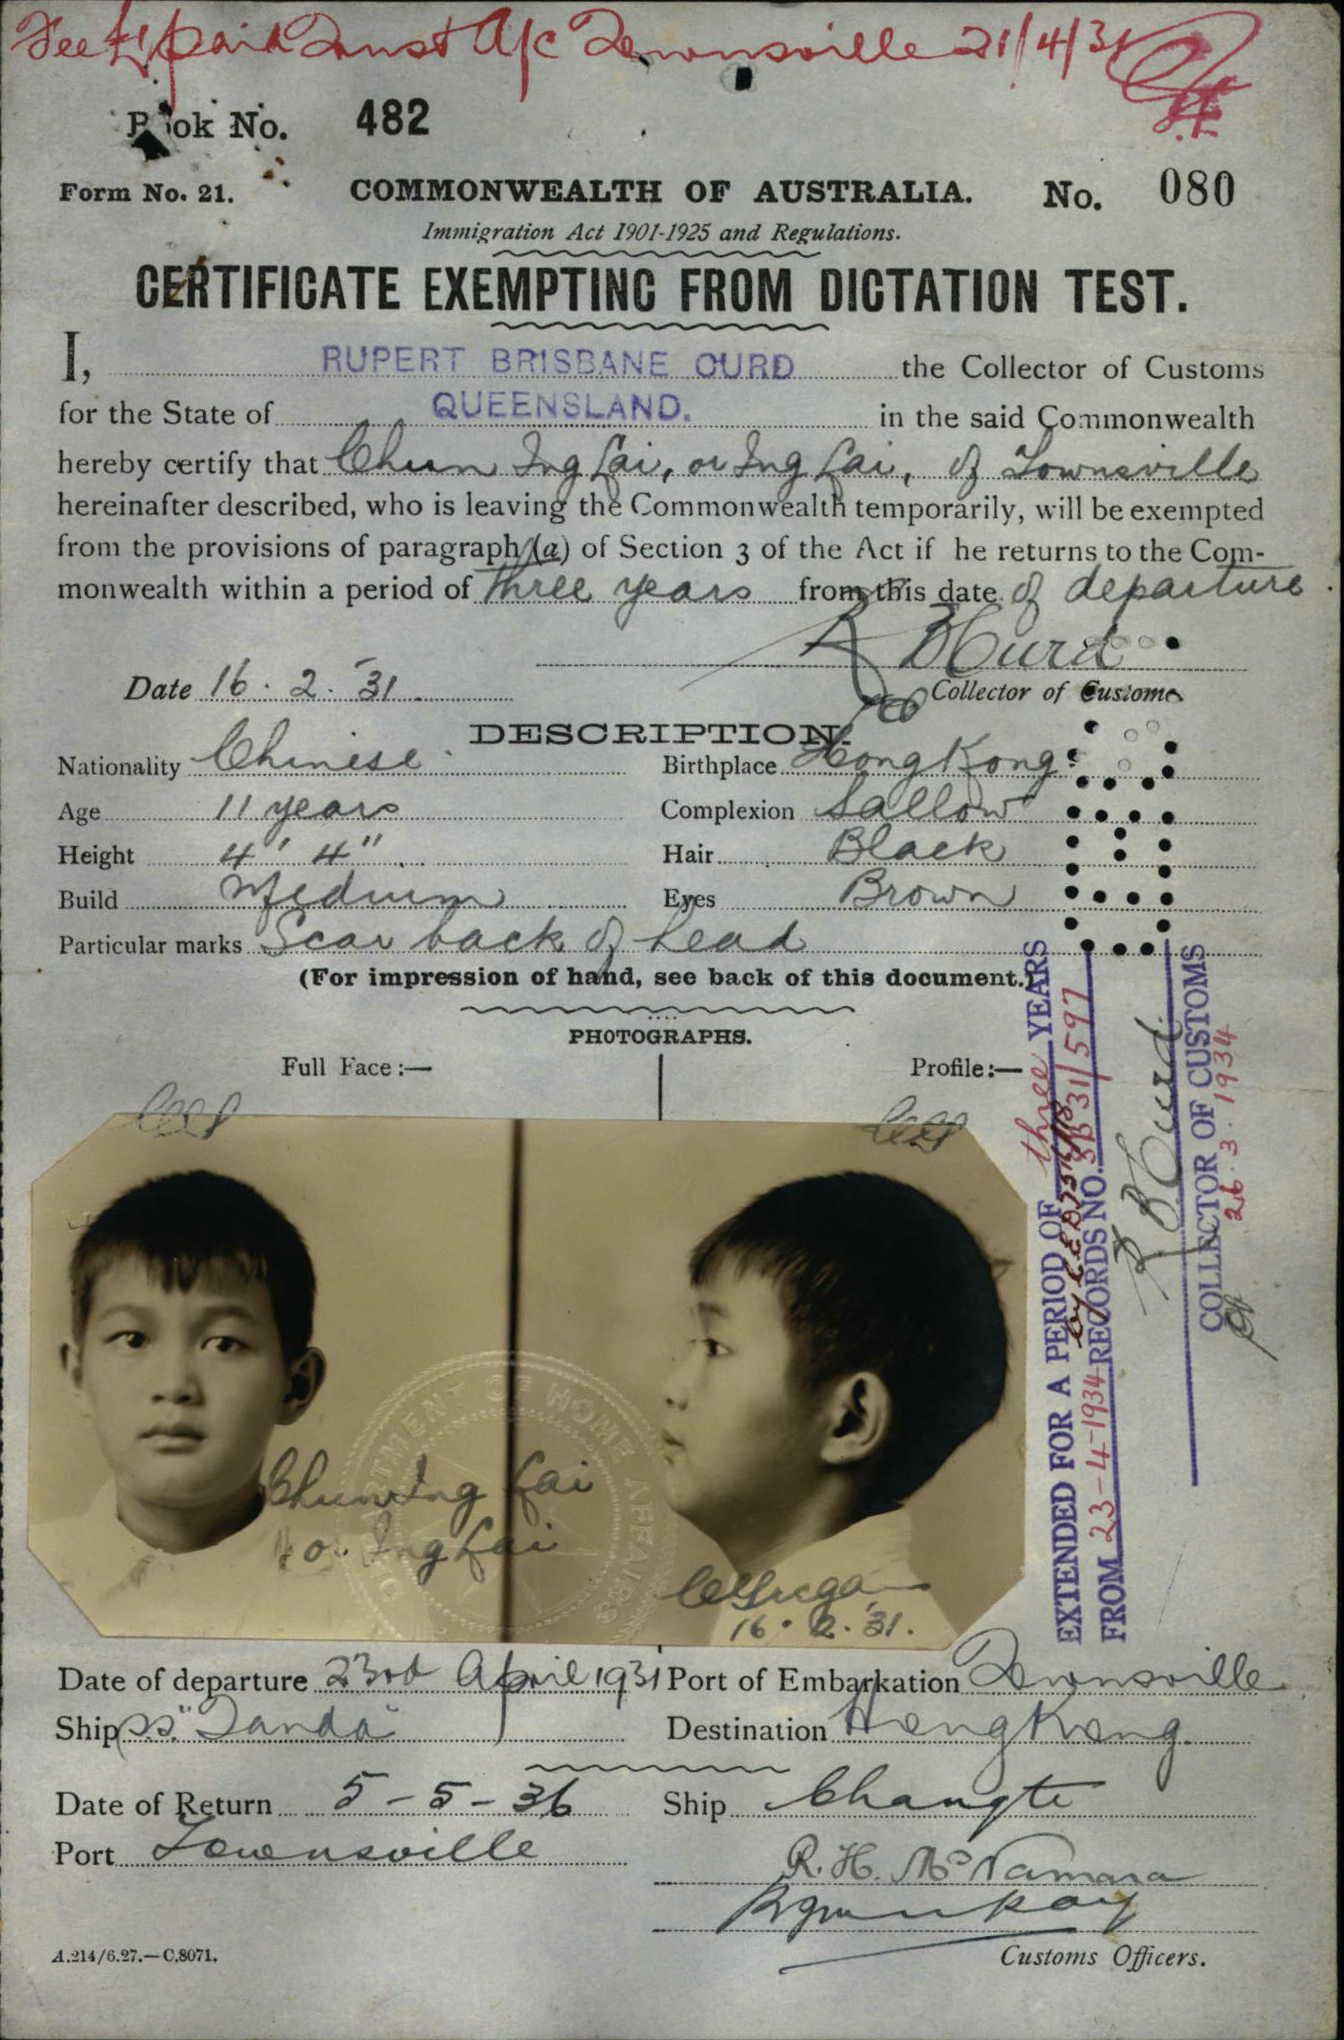 Fee £1 paid Trust A/c Townsville 21/4/31
Book No. 482
Form No. 21. COMMONWEALTH OF AUSTRALIA. No. 080
Immigration Act 1901-1925 and Regulations.
CERTIFICATE EXEMPTING FROM DICTATION TEST.
I, RUPERT BRISBANE CURD the Collector of Customs
for the State of QUEENSLAND. in the said Commonwealth
hereby certify that Chun Ing Lai, or Ing Lai, of Townsville
hereinafter described, who is leaving the Commonwealth temporarily, will be exempted
from the provisions of paragraph (a) of Section 3 of the Act if he returns to the Com-
monwealth within a period of three years from this date of departure
R B Curd
Date 16.2.31 Collector of Customs
DESCRIPTION.
Nationality Chinese Birthplace Hong Kong
Age 11 years Complexion Sallow
Height 4' 4" Hair Black
Build Medium Eyes Brown
Particular marks Scar back of head
(For impression of hand, see back of this document.)
PHOTOGRAPHS.
Full Face:— Profile:—
Chun Ing Lai
or Ing Lai
DEPARTMENT OF HOME AFFAIRS
16.2.31.
EXTENDED FOR A PERIOD OF three YEARS
FROM 23-4-1934 RECORDS NO. 31/597
R B Curd
COLLECTOR OF CUSTOMS
26.3.1934
Date of departure 23rd April 1931 Port of Embarkation Townsville
Ship S.S. "Tanda" Destination Hong Kong.
Date of Return 5-5-36 Ship Changte
Port Townsville
R. H. McNamara
A.214/6.27.—C.8071. Customs Officers.